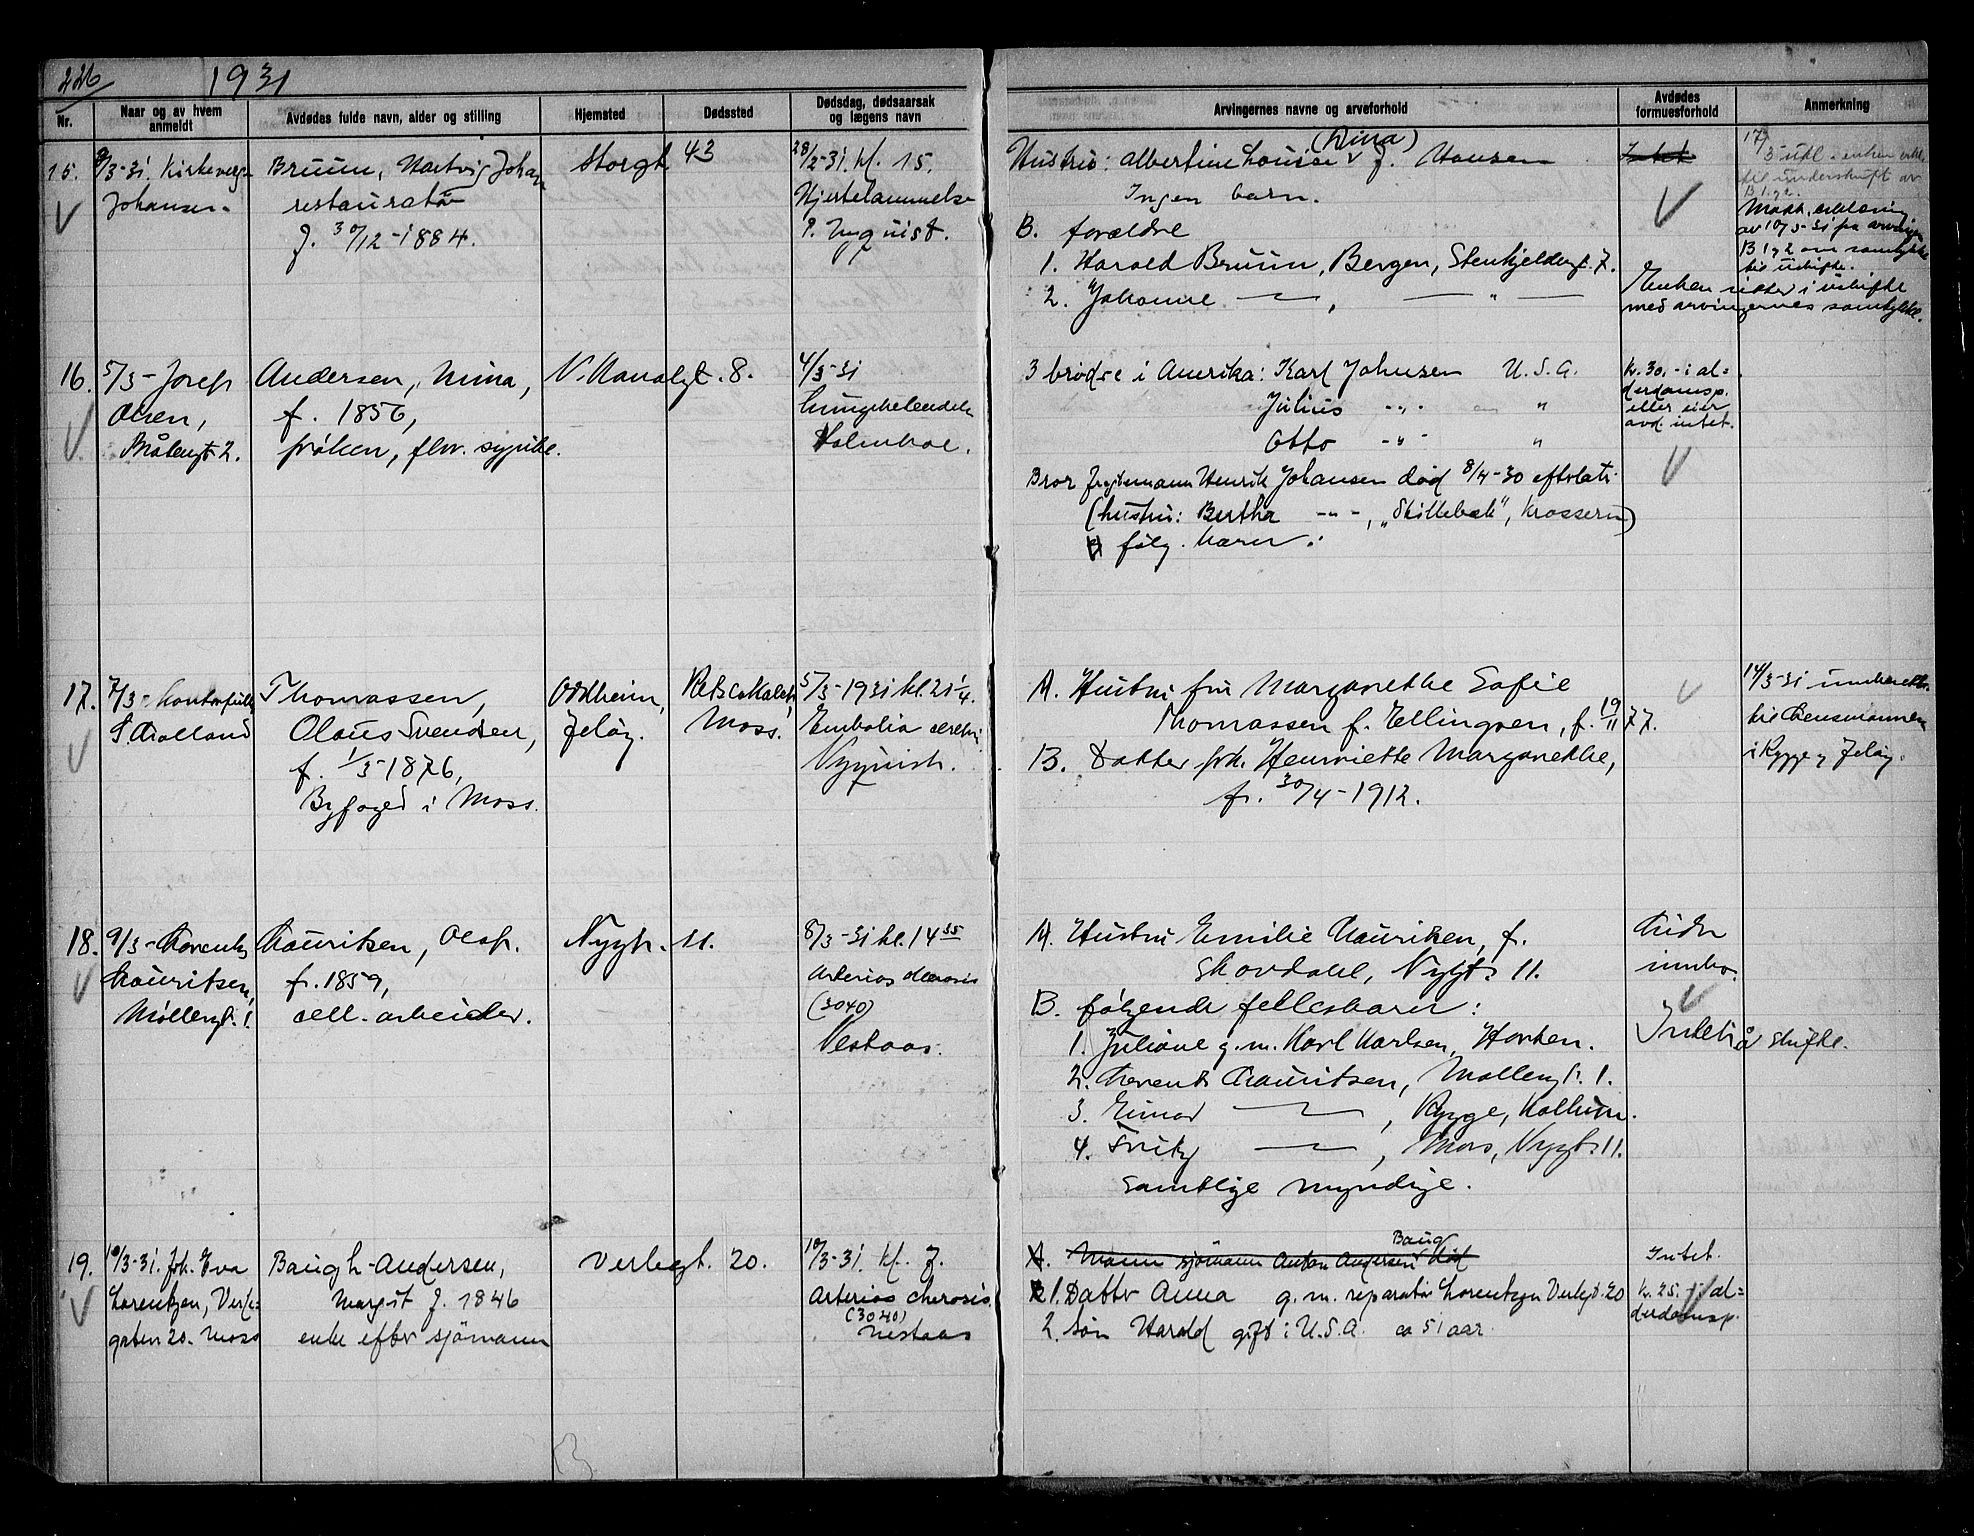 226 1931
Nr.
Naar og av hvem anmeldt
Avdødes fulde navn, alder og stilling
Hjemsted
Dødssted
Dødsdag, dødsaarsak og lægens navn
Arvingernes navne og arveforhold
Avdødes formuesforhold
Anmerkning
15. 9/3-31. Kirkeverge
Johansen.
Bruun, Hartvig Johan
restauratör
f. 30/12-1884.
Storgt 43
28/2-31. kl. 15.
Hjertelammelse
Hustru: Albertine Louise f. Hansen
(Dina)
Ingen barn.
B. forældre
1. Harald Bruun, Bergen, Stenkjeldergt. 7.
2. Johanne — , — " —
Intet
17/3
Enken sitter i uskifte
med arvingernes samtykke.
Modt. erklæring
av 10/5-31 fra arvinger
B 1 og 2 om samtykke
til uskifte.
16. 5/3- Josef
Olsen,
Andersen, Mina,
f. 1856,
frøken, fhv. sypike.
N. Kanalgt. 8.
4/3-31
Holmboe.
3 brødre i Amerika: Karl Johnsen U.S.A.
Julius -"- "
Otto -"- "
Bror Henrik Johansen død 8/4-30 efterlatt
(hustru: Bertha -"-, "Skillebæk", Krosseren)
følg. barn:
kr. 30,- i al=
derdomsp.
eller eier
avd. intet.
17. 7/3-
Thomassen,
Olaus Svendsen,
f. 1/3-1876,
Byfoged i Moss.
Oddheim,
Jeløy.
Moss.
5/3-1931 kl. 21 1/4.
Embolia cerebri
Nyquist.
A. Hustru fru Margarethe Sofie
Thomassen f. Ellingsen, f. 19/11 77.
B. Datter frk. Henriette Margarethe,
f. 30/4-1912.
14/3-31 innberettn.
til lensmannen
i Rygge og Jeløy.
18. 9/3- Lorentz
Lauritsen,
Møllergt. 1.
Lauritsen, Olaf.
f. 1859,
cell. arbeider.
Nygt. 11.
8/3-31 kl. 14 35
Arterios clerosis
(3040)
Vestaas.
A. Hustru Emilie Lauritsen, f.
Skovdahl, Nygt. 11.
B. følgende fellesbarn:
1. Juliane g.m. Karl Karlsen, Horten.
2. Lorentz Lauritsen, Møllergt. 1.
3. Einar — , Rygge, Kallum.
4. Fritz — , Moss, Nygt. 11.
Samtlige myndige.
Litt
innbo.
Intet å skifte.
19. 10/3-31. Joh. Eva
Lorentzen, Verle-
gaten 20. Moss
Baugh-Andersen,
Margit f. 1846
enke efter sjömann
Verlegt. 20.
10/3-31. kl. 7.
Arterios clerosis.
(3040)
Vestaas
A. Mann sjömann Anton Andersen Baug död
1. Datter Anna g.m. reparatör Lorentzen Verlegt. 20
2. Sön Harald gift i U.S.A. ca 51 aar.
Intet.
kr. 25.- i al=
derdomsp.